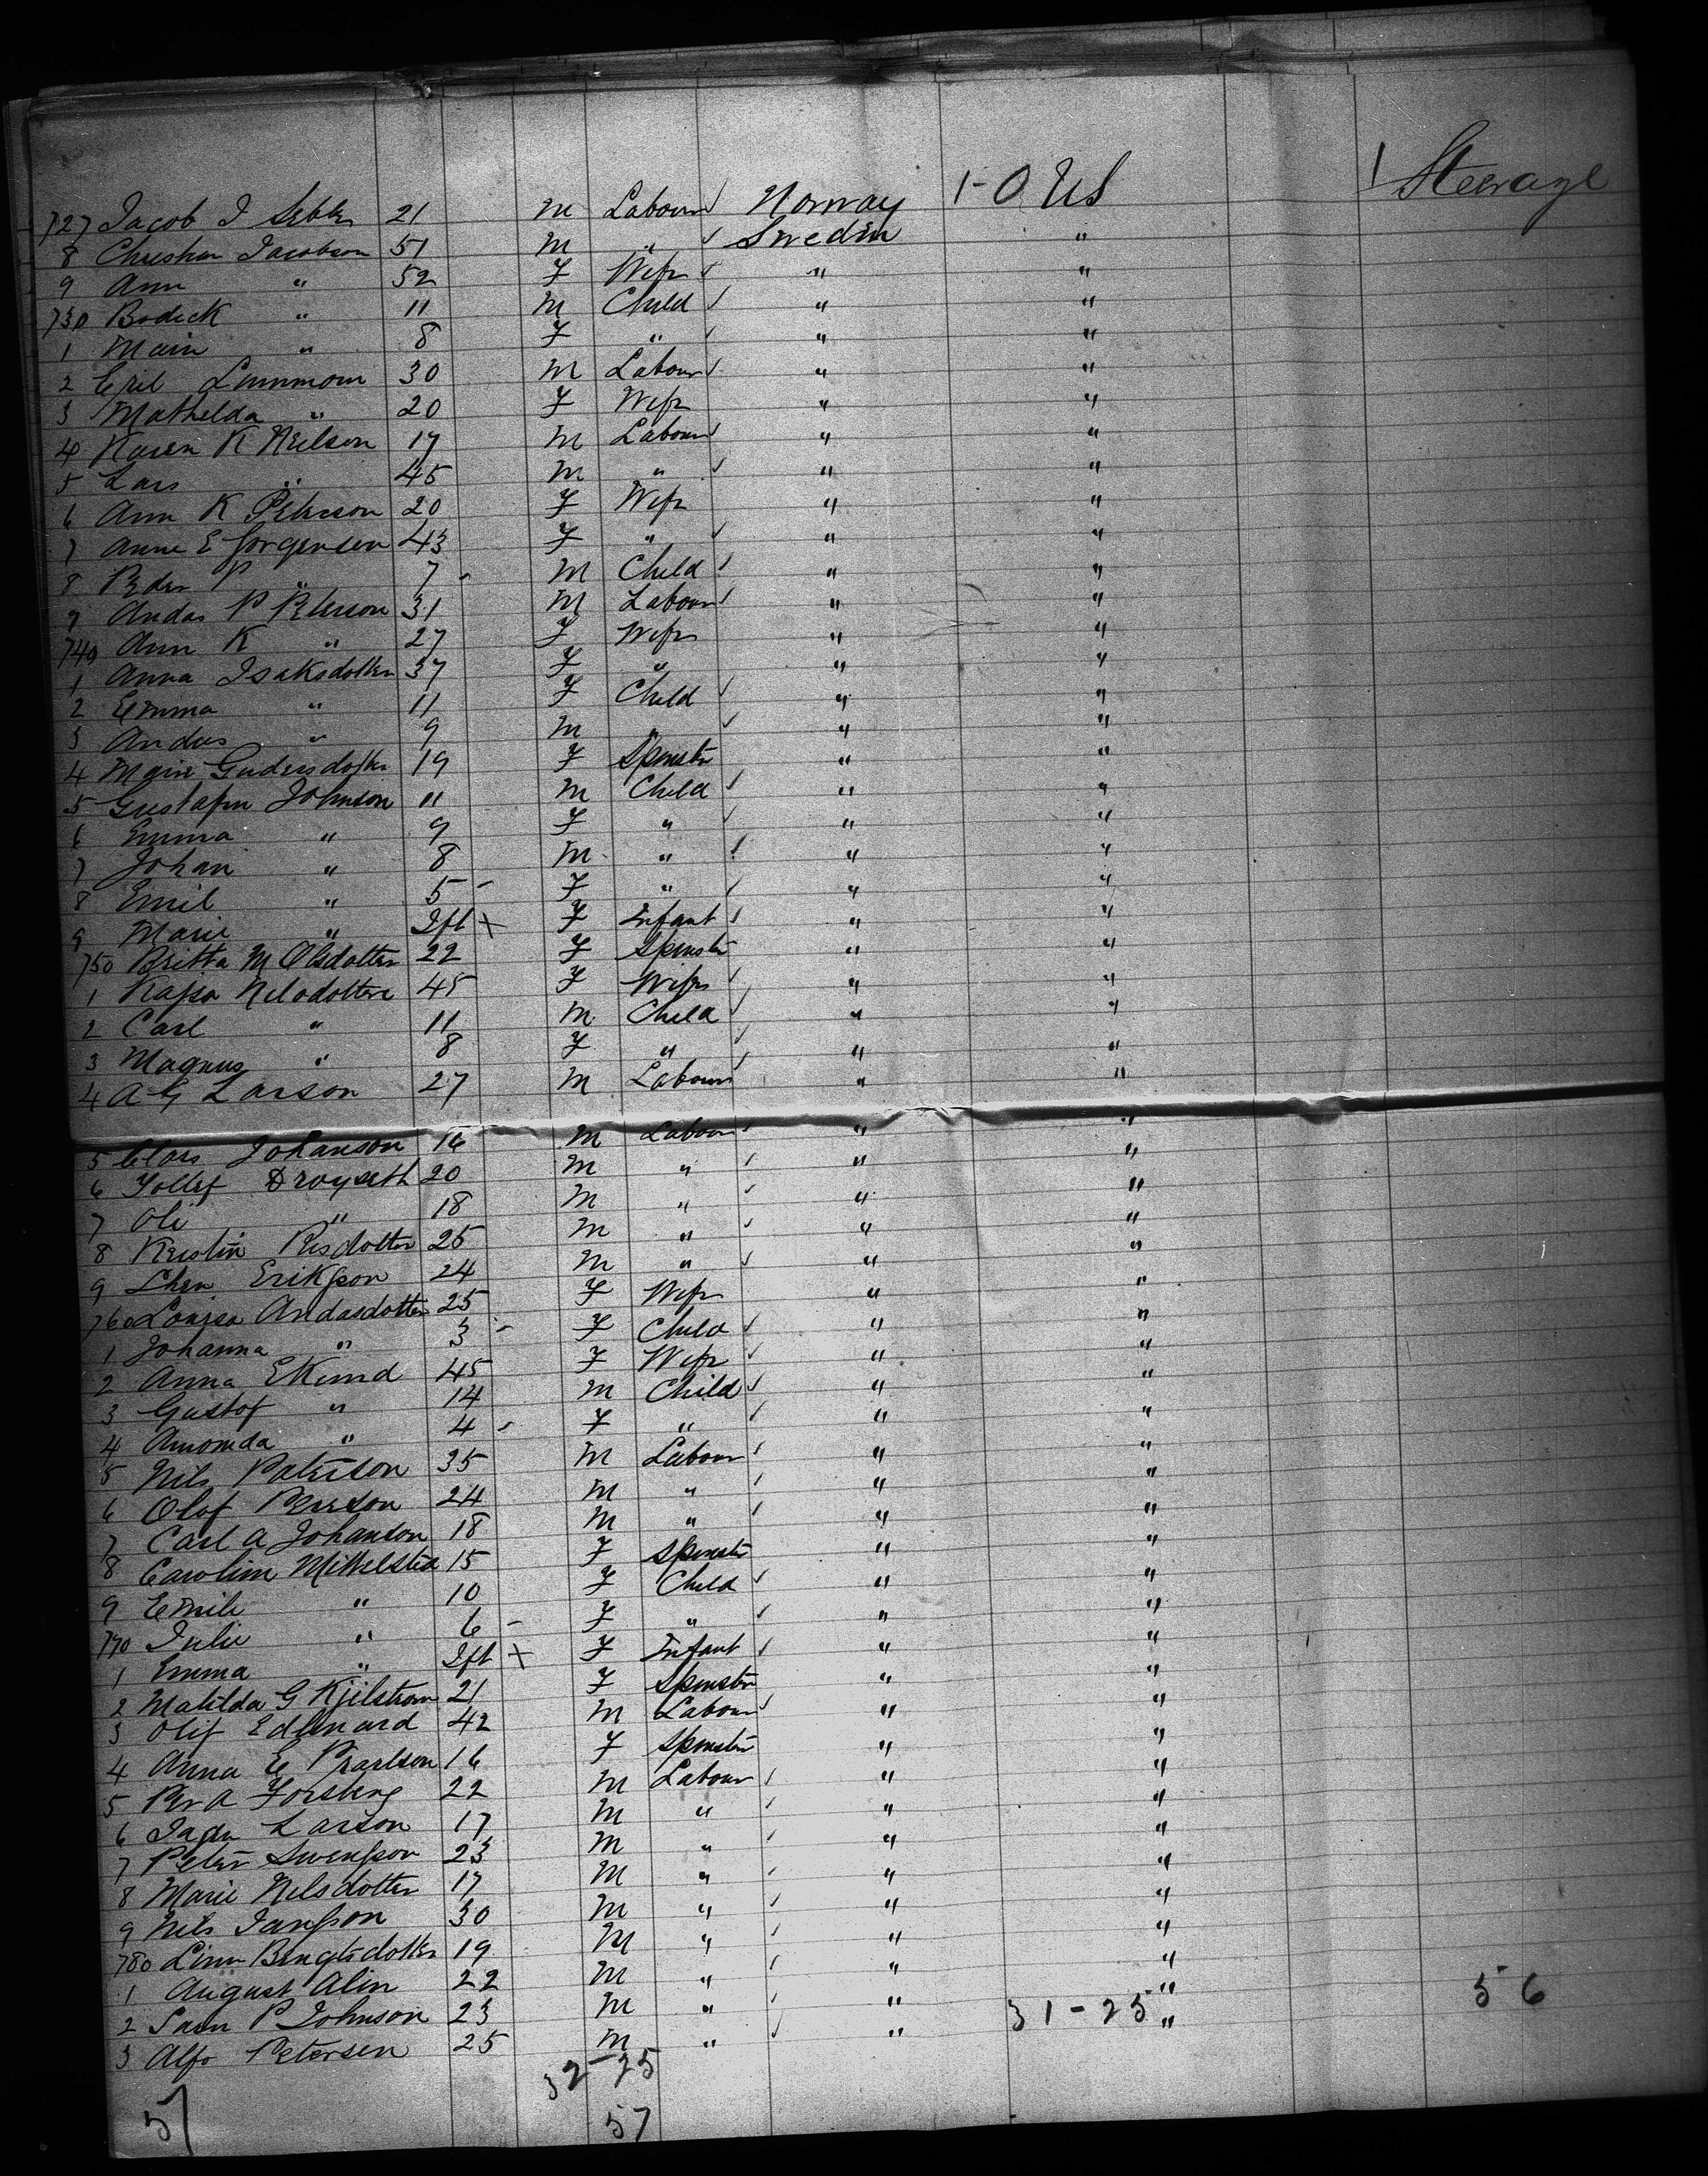 1 Steerage
727 Jacob J 21 m Labour Norway 1-0 US
8 Christian Jacobson 51 m " Sweden "
9 Ann " 52 F Wife " "
730 Bodick " 11 m Child " "
1 Main " 8 F " " "
2 Eril 30 m Labour " "
3 Mathelda " 20 F Wife " "
4 Karen K Neilson 17 m Labour " "
5 Lars " 45 m " " "
6 Ann K Peterson 20 F Wife " "
7 Anne E Jorgensen 43 F " " "
8 Peder P " 7 - m Child " "
9 Andas P Peterson 31 m Labour " "
740 Ann K " 27 F Wife " "
1 Anna Isaksdotter 37 F " " "
2 Emma " 11 F Child " "
3 Andus " 9 m " " "
4 Marie Gudersdotter 19 F Spinster " "
5 Gustafin Johnson 11 m Child " "
6 Emma " 9 F " " "
7 Johan " 8 m " " "
8 Emil " 5 - F " " "
9 Marie " Ift + F Infant " "
750 Britta M Olsdotter 22 F Spinster " "
1 Kajsa Nilsdotter 45 F Wife " "
2 Carl " 11 m Child " "
3 Magnus " 8 F " " "
4 A G Larson 27 m Labour " "
5 Clars Johanson 16 m Labour " "
6 Tollef Droyseth 20 m " " "
7 Oli " 18 m " " "
8 Kerstin Persdotter 25 m " " "
9 Erikson 24 m " " "
760 Louisa Andasdotter 25 F Wife " "
1 Johanna " 3 - F Child " "
2 Anna Ekund 45 F Wife " "
3 Gustof " 14 m Child " "
4 Amomda " 4 - F " " "
5 Nils Paterson 35 m Labour " "
6 Olof Person 24 m " " "
7 Carl A Johanson 18 m " " "
8 Carolim Mikkelsted 15 F Spinster " "
9 Emili " 10 F Child " "
770 Julie " 6 - F " " "
1 Emma " Ift + F Infant " "
2 Matilda G Kjilstrom 21 F Spinster " "
3 Olif Edlmard 42 m Labour " "
4 Anna E Pearlson 16 F Spinster " "
5 Per A Forsberg 22 m Labour " "
6 Larson 17 m " " "
7 Peter Swenson 23 m " " "
8 Marie Nilsdotter 17 m " " "
9 Nils Janson 30 m " " "
780 Linn Bengtsdotter 19 m " " "
1 August Alin 22 m " " "
2 Sam P Johnson 23 m " " " 56
3 Alfo Petersen 25 m " " 31-25 "
32-25
57 57